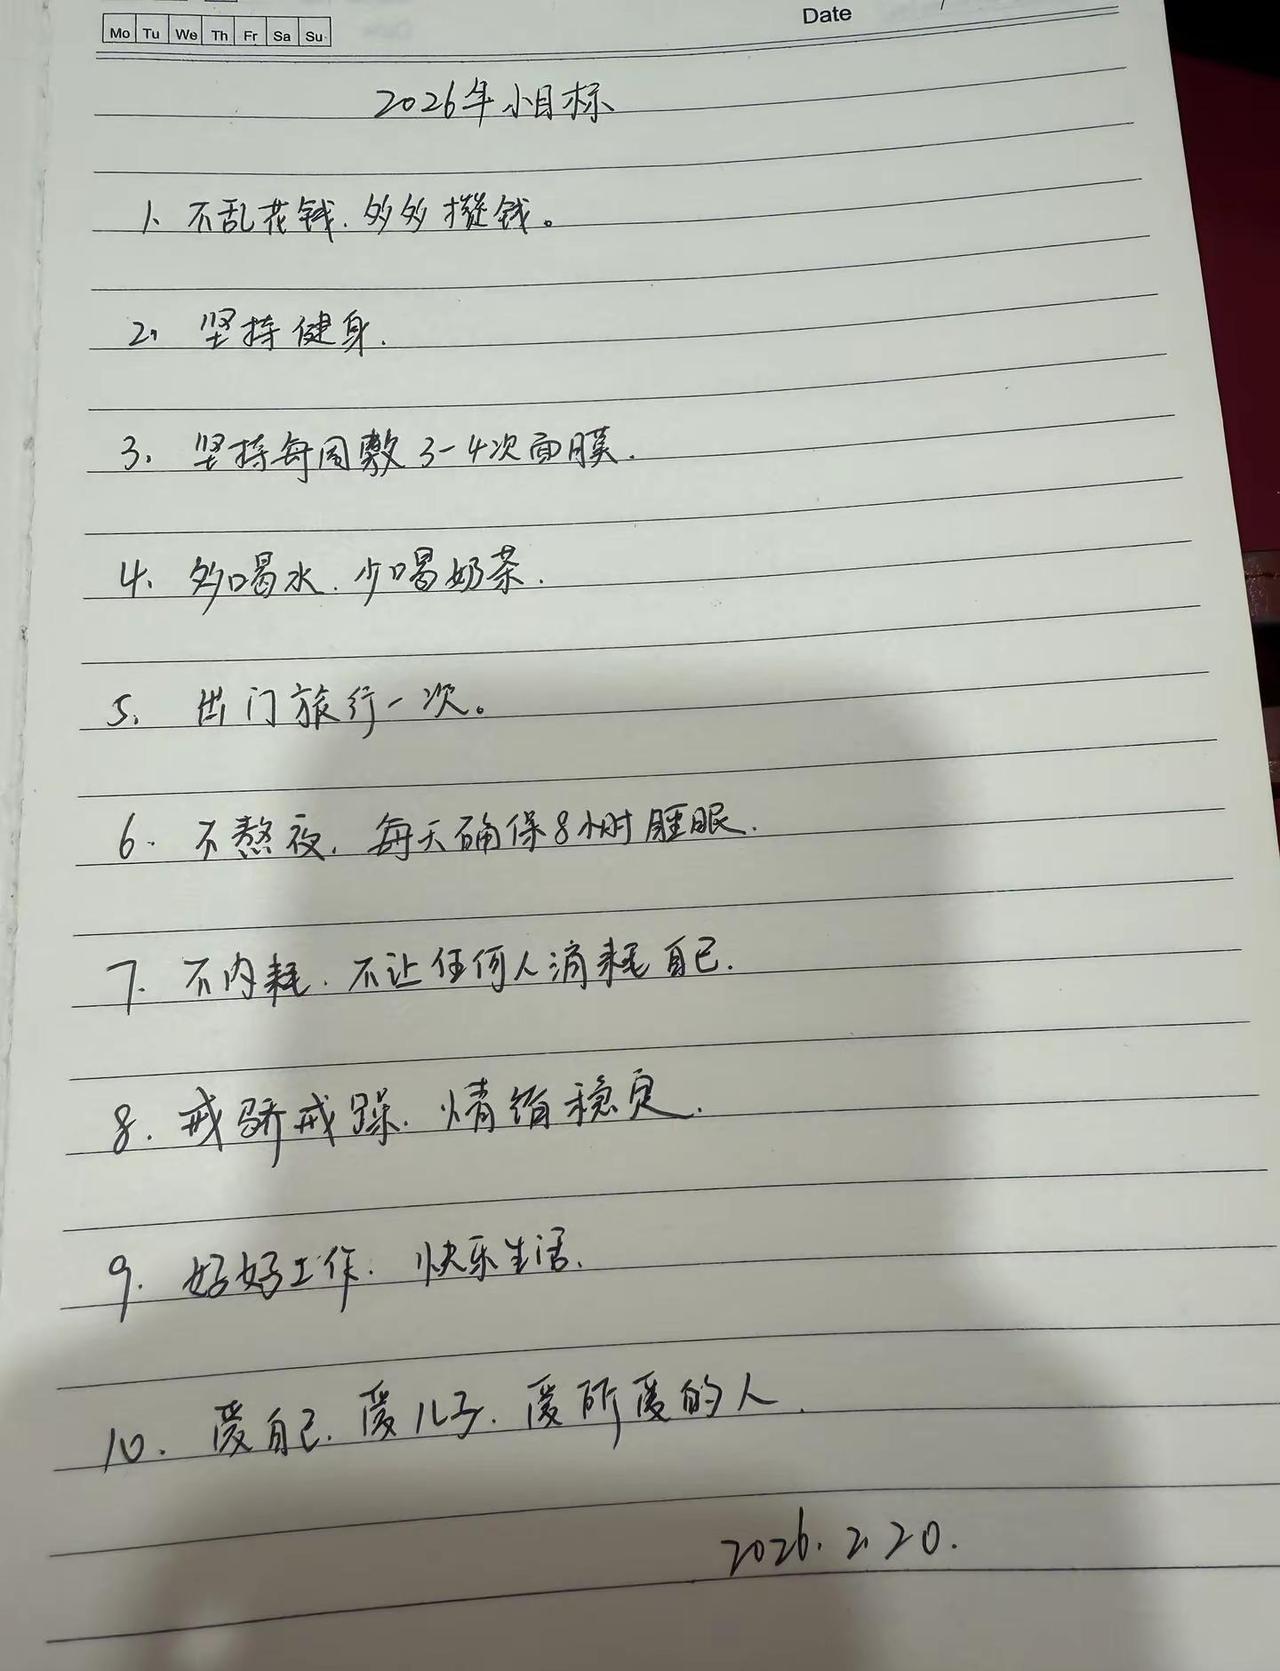 Mo Tu We Th Fr Sa Su
Date
2026年小目标
1、不乱花钱.多多攒钱。
2、坚持健身.
3、坚持每周敷3-4次面膜.
4、多喝水.少喝奶茶.
5、出门旅行一次。
6.不熬夜.每天确保8小时睡眠.
7.不内耗.不让任何人消耗自己.
8.戒骄戒躁.情绪稳定.
9.好好工作.快乐生活.
10.爱自己.爱儿子.爱所爱的人.
2026.2.20.